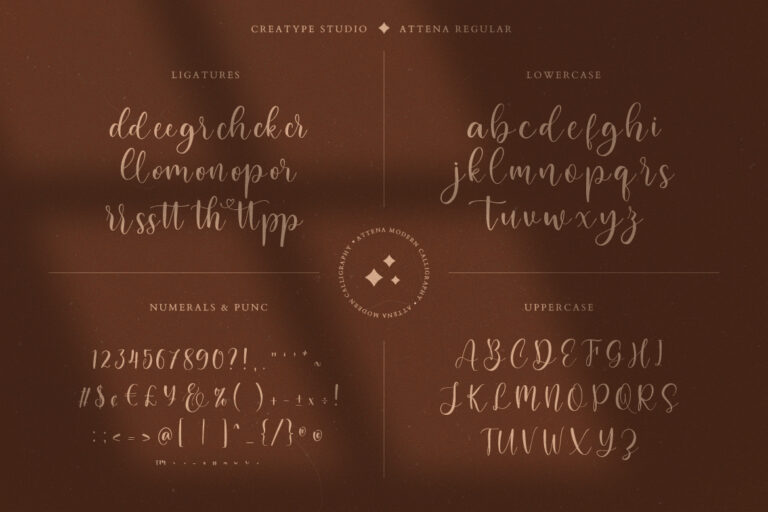 CREATYPE STUDIO ATTENA REGULAR
LIGATURES
dd ee gr ch ck cr
ll om on op or
rr ss tt th tt pp
LOWERCASE
a b c d e f g h i
j k l m n o p q r s
t u v w x y z
ATTENA MODERN CALLIGRAPHY • ATTENA MODERN CALLIGRAPHY •
NUMERALS & PUNC
1234567890?!,. " ' ' * ~
#$¢€£¥&%( )+−±×÷!
:;<=>@[ | ]^_{/}
™
UPPERCASE
A B C D E F G H I
J K L M N O P Q R S
T U V W X Y Z